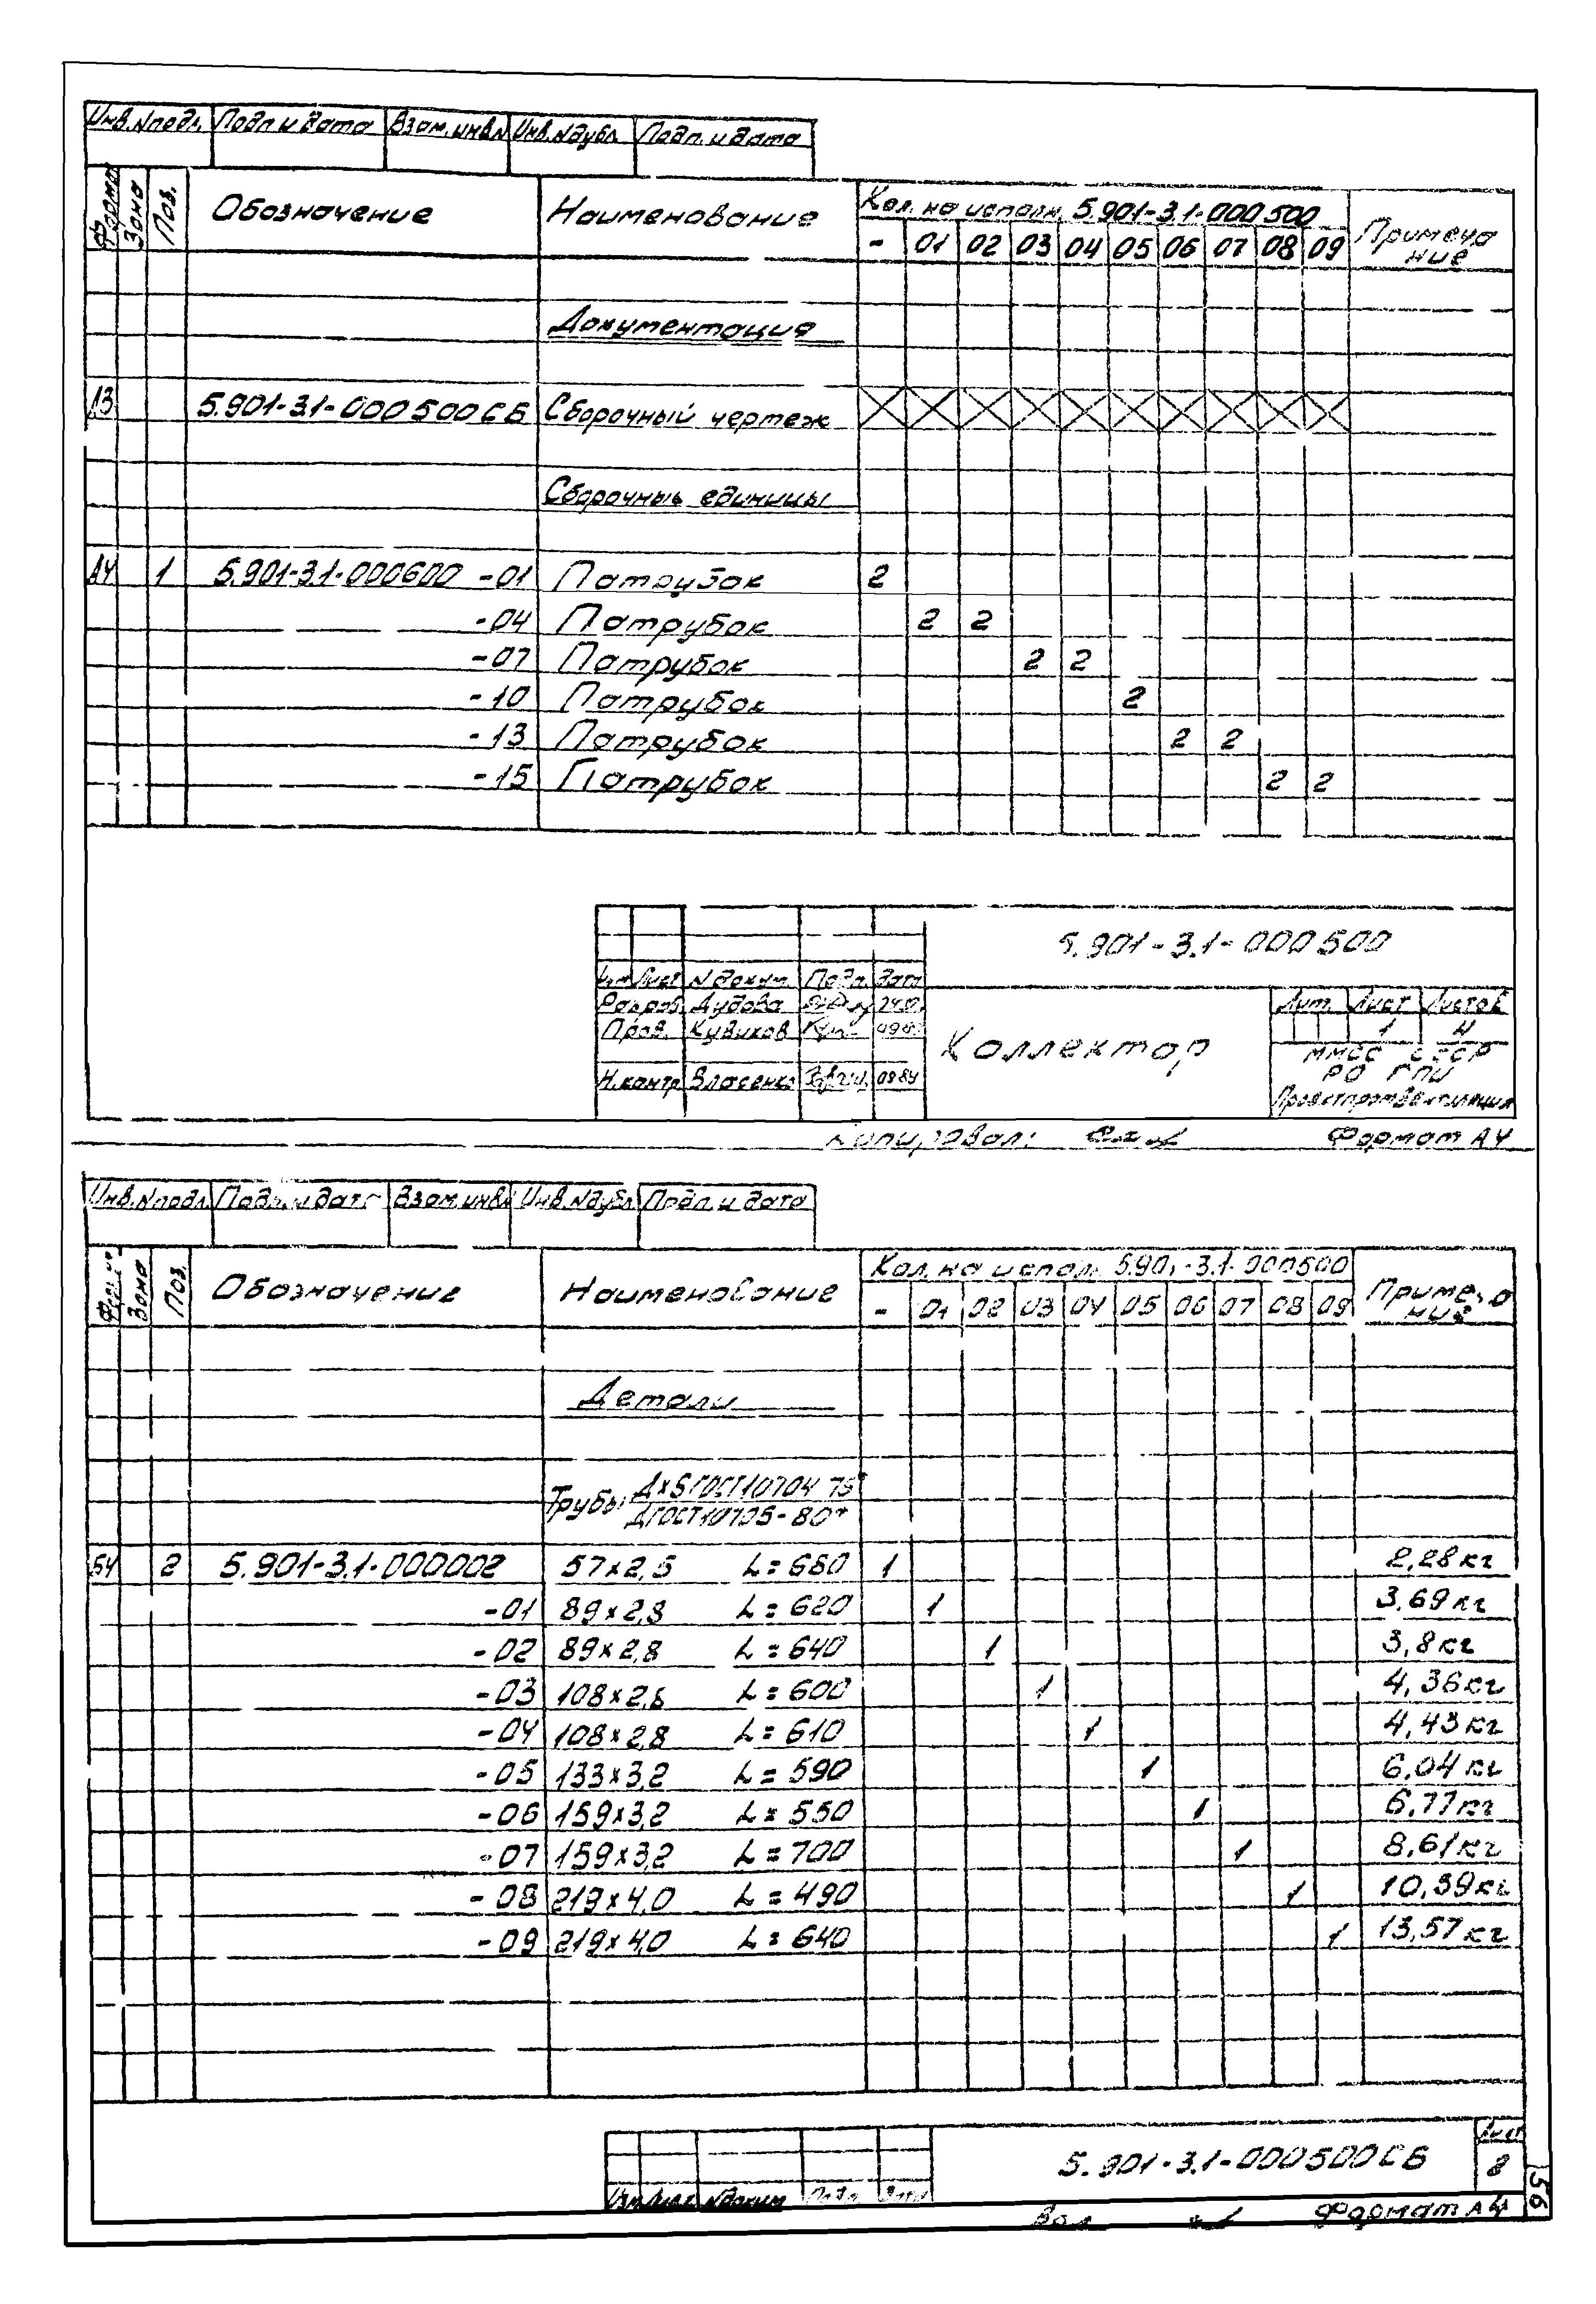 Инв.Nподл. Подп и дата Взам.инв.N Инв.Nдубл. Подп. и дата
Формат Зона Поз. Обозначение Наименование Кол. на исполн. 5.901-3.1-000500 Примечание
- 01 02 03 04 05 06 07 08 09
Документация
А3 5.901-3.1-000500СБ Сборочный чертеж
Сборочные единицы
А4 1 5.901-3.1-000600 -01 Патрубок 2
-04 Патрубок 2 2
-07 Патрубок 2 2
-10 Патрубок 2
-13 Патрубок 2 2
-15 Патрубок 2 2
5.901-3.1-000500
Изм Лист N докум. Подп. Дата
Разраб. Дудова
Пров. Кувиков
Н.контр Власенко 0984
Коллектор
Лит. Лист Листов
1 4
ММСС СССР
РО ГПИ
Проектпромвентиляция
Копировал: Формат А4
Инв.Nподл. Подп. и дата Взам.инв.N Инв.Nдубл. Подп. и дата
Формат Зона Поз. Обозначение Наименование Кол. на испол. 5.901-3.1-000500 Примечание
- 01 02 03 04 05 06 07 08 09
Детали
Трубы ДхSГОСТ10704 75*
ДГОСТ10705-80*
Б4 2 5.901-3.1-000002 57×2,5 L=680 1 2,28кг
-01 89×2,8 L=620 1 3,69кг
-02 89×2,8 L=640 1 3,8кг
-03 108×2,8 L=600 1 4,36кг
-04 108×2,8 L=610 1 4,43кг
-05 133×3,2 L=590 1 6,04кг
-06 159×3,2 L=550 1 6,77кг
-07 159×3,2 L=700 1 8,61кг
-08 219×4,0 L=490 1 10,39кг
-09 219×4,0 L=640 1 13,57кг
5.901-3.1-000500СБ
Лист
2
Изм Лист N докум Подп. Дата
Формат А4
56